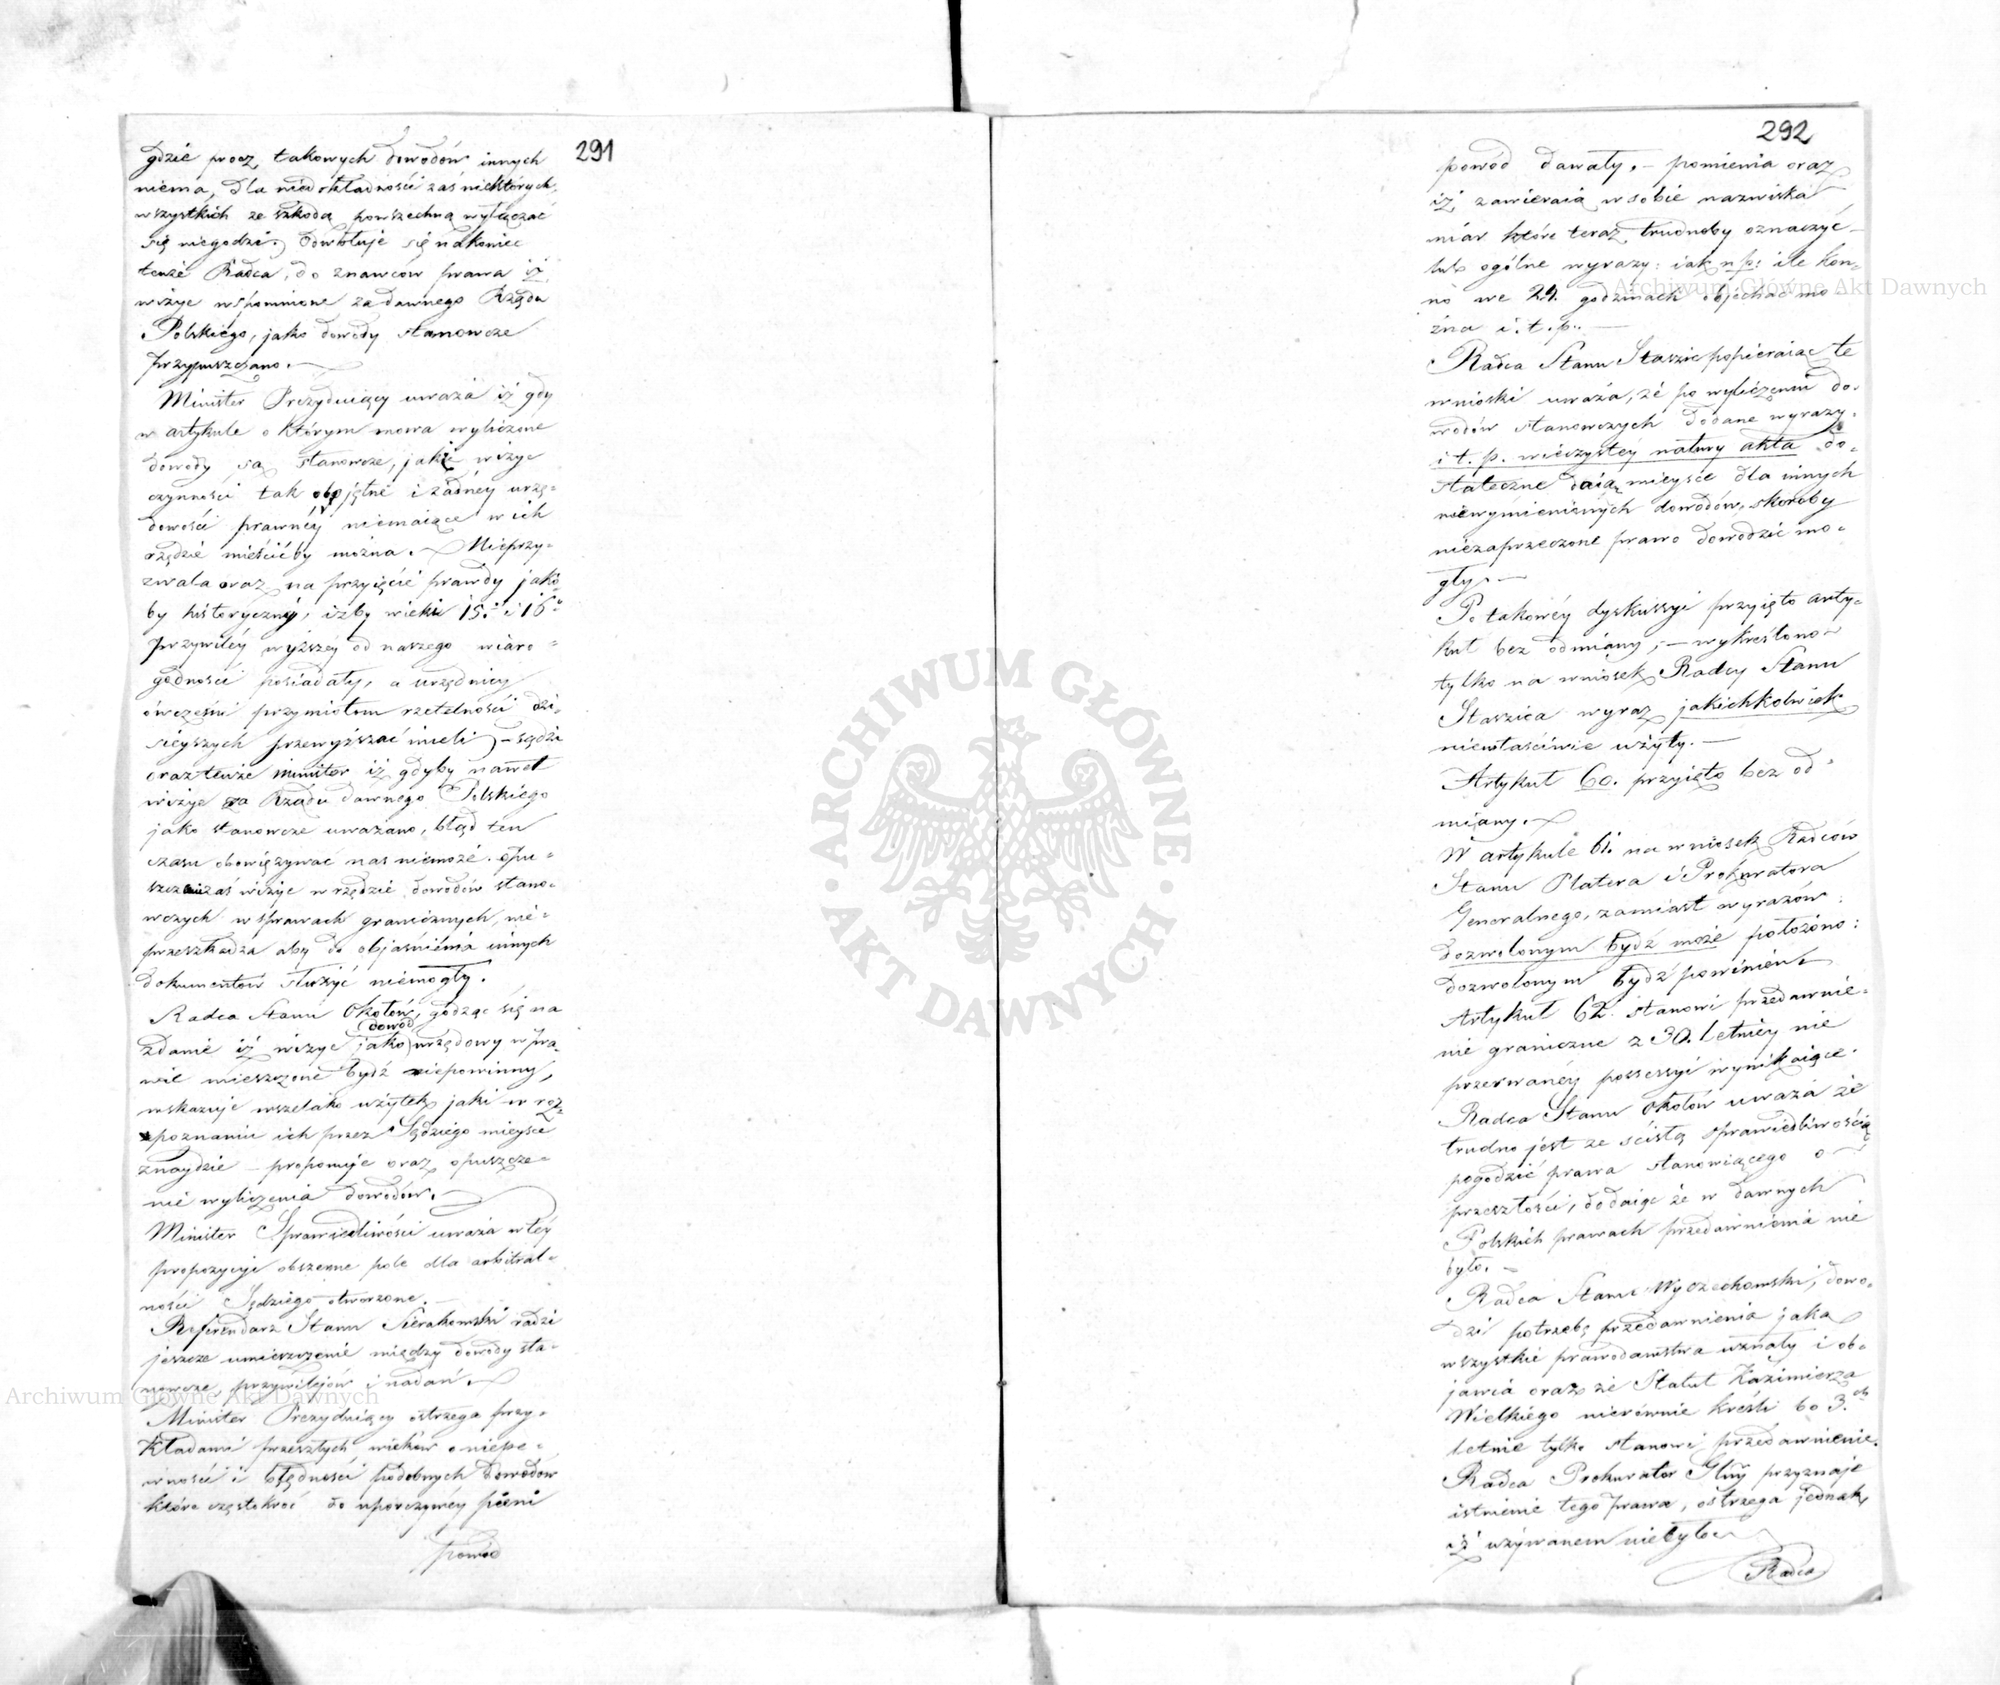 291
gdzie prócz takowych dowodów innych
niema, dla niedokładności zaś niektórych,
wszystkich ze szkodą powszechną wyłączać
się niegodzi. Odwołuje się nakoniec
tenże Radca, do znawców prawa iż
wizye wspomnione za dawnego Rządu
Polskiego, jako dowody stanowcze
przypuszczano. —
Minister Prezyduiący uważa iż gdy
w artykule o którym mowa wyliczone
dowody są stanowcze, jakże wizye
czynności tak obojętne i żadnéy urzę-
dowości prawnéy niemaiące w ich
rzędzie mieścićby można. — Nieprzy-
zwala oraz na przyięcie prawdy jako
by historycznéy, iżby wieki 15. i 16.
przywiléy wyższéy od naszego wiaro-
godności posiadały, a urzędnicy
ówcześni przymiotem rzetelności dzi-
sieyszych przewyższać mieli — sądzi
oraz tenże minister iż gdyby nawet
wizye za Rządu dawnego Polskiego
jako stanowcze uważano, błąd ten
czasu obowięzywać nas niemoże. Opu-
szczenie zaś wizyi w rzędzie dowodów stano-
wczych w sprawach granicznych, nie-
przeszkadza aby do objaśnienia innych
dokumentów służyć niemogły.
Radca Stanu Okołów, godząc się na
zdanie iż wizye jako dowód urzędowy w pra-
wie mieszczone bydź niepowinny,
wskazuje wszelako użytek jaki w roz-
poznaniu ich przez Sędziego mieysce
znaydzie — proponuje oraz opuszcze-
nie wyliczenia dowodów. —
Minister Sprawiedliwości uważa w téy
propozycyi obszerne pole dla arbitral-
ności Sędziego otworzone. —
Referendarz Stanu Sierakowski radzi
jeszcze umieszczenie między dowody sta-
nowcze, przywilejów i nadań. —
Minister Prezyduiący ostrzega przy-
kładami przeszłych wieków o niepe-
wności i błędności podobnych dowodów
które częstokroć do uporczywéy pieni
powód
292
powód dawały. — pomienia oraz
iż zawieraią w sobie nazwiska
miar które teraz trudnoby oznaczyć —
lub ogólne wyrazy: iak np: ile kon-
no we 24. godzinach objechać mo-
żna i. t. p. —
Radca Stanu Staszic popieraiąc te
wnioski uważa, że po wyliczeniu do-
wodów stanowczych dodane wyrazy:
i t. p. wieczystéy natury akta do-
stateczne daią mieysce dla innych
niewymienionych dowodów, skoroby
niezaprzeczone prawo dowodzić mo-
gły. —
Po takowéy dyskussyi przyięto arty-
kuł bez odmiany; — wykreślono —
tylko na wniosek Radcy Stanu
Staszica wyraz jakichkolwiek
niewłaściwie użyty. —
Artykuł 60. przyięto bez od-
miany. —
W artykule 61. na wniosek Radców
Stanu Platera i Prokuratora
Generalnego, zamiast wyrazów:
dozwolonym bydź może położono:
dozwolonym bydź powinien. —
Artykuł 62. stanowi przedawnie-
nie graniczne z 30. letniéy nie
przerwanéy possessyi wynikaiące.
Radca Stanu Okołów uważa że
trudno jest ze ścisłą sprawiedliwością
pogodzić prawa stanowiącego o —
przeszłości, dodaiąc że w dawnych
Polskich prawach przedawnienia nie
było. —
Radca Stanu Wyczechowski, dowo-
dzi potrzebę przedawnienia jaką
wszystkie prawodawstwa uznały i ob-
jawia oraz że Statut Kazimierza
Wielkiego nierównie krótsze bo 3.ch
letnie tylko stanowi przedawnienie.
Radca Prokurator Glny przyznaje
istnienie tego prawa, ostrzega jednak
iż używanem niebyło. —
Radca
ARCHIWUM GŁÓWNE
AKT DAWNYCH
Archiwum Główne Akt Dawnych
Archiwum Główne Akt Dawnych